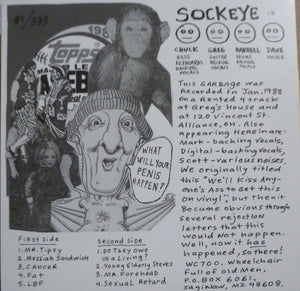 #1/333
SOCKEYE is
CHUCK
BASS
KEYBOARDS
BACKING
VOCALS
GREG
GUITAR
BACKING
VOCALS
DARRELL
DRUMS
BACKING
VOCALS
DAVE
VOCALS
topps
WHAT
WILL YOUR
PENIS
HAPPEN?
THIS GARBAGE was
Recorded in Jan. 1988
on a Rented 4track
at Greg's House and
at 120 Vincent St.
Alliance, OH. Also
appearing HEREin are:
Mark-backing vocals,
Digital-backing vocals,
Scott-various noises.
We originally titled
this "We'll Kiss Any-
one's Ass to Get this
on Vinyl", but then it
Became obvious through
several rejection
letters that this
would Not happen.
Well, now it has
happened, so there!
WC700. Wheelchair
Full of Old Men,
P.O. BOX 6061,
Saginaw, MI 48608.
First side
1. Mr. Tipsy
2. Messiah Sandwich
3. Cancer
4. Fat
5. LBF
Second Side
1. Do They Owe
Us a Living?
2. Young Elderly Steves
3. Mr. Forehead
4. Sexual Retard